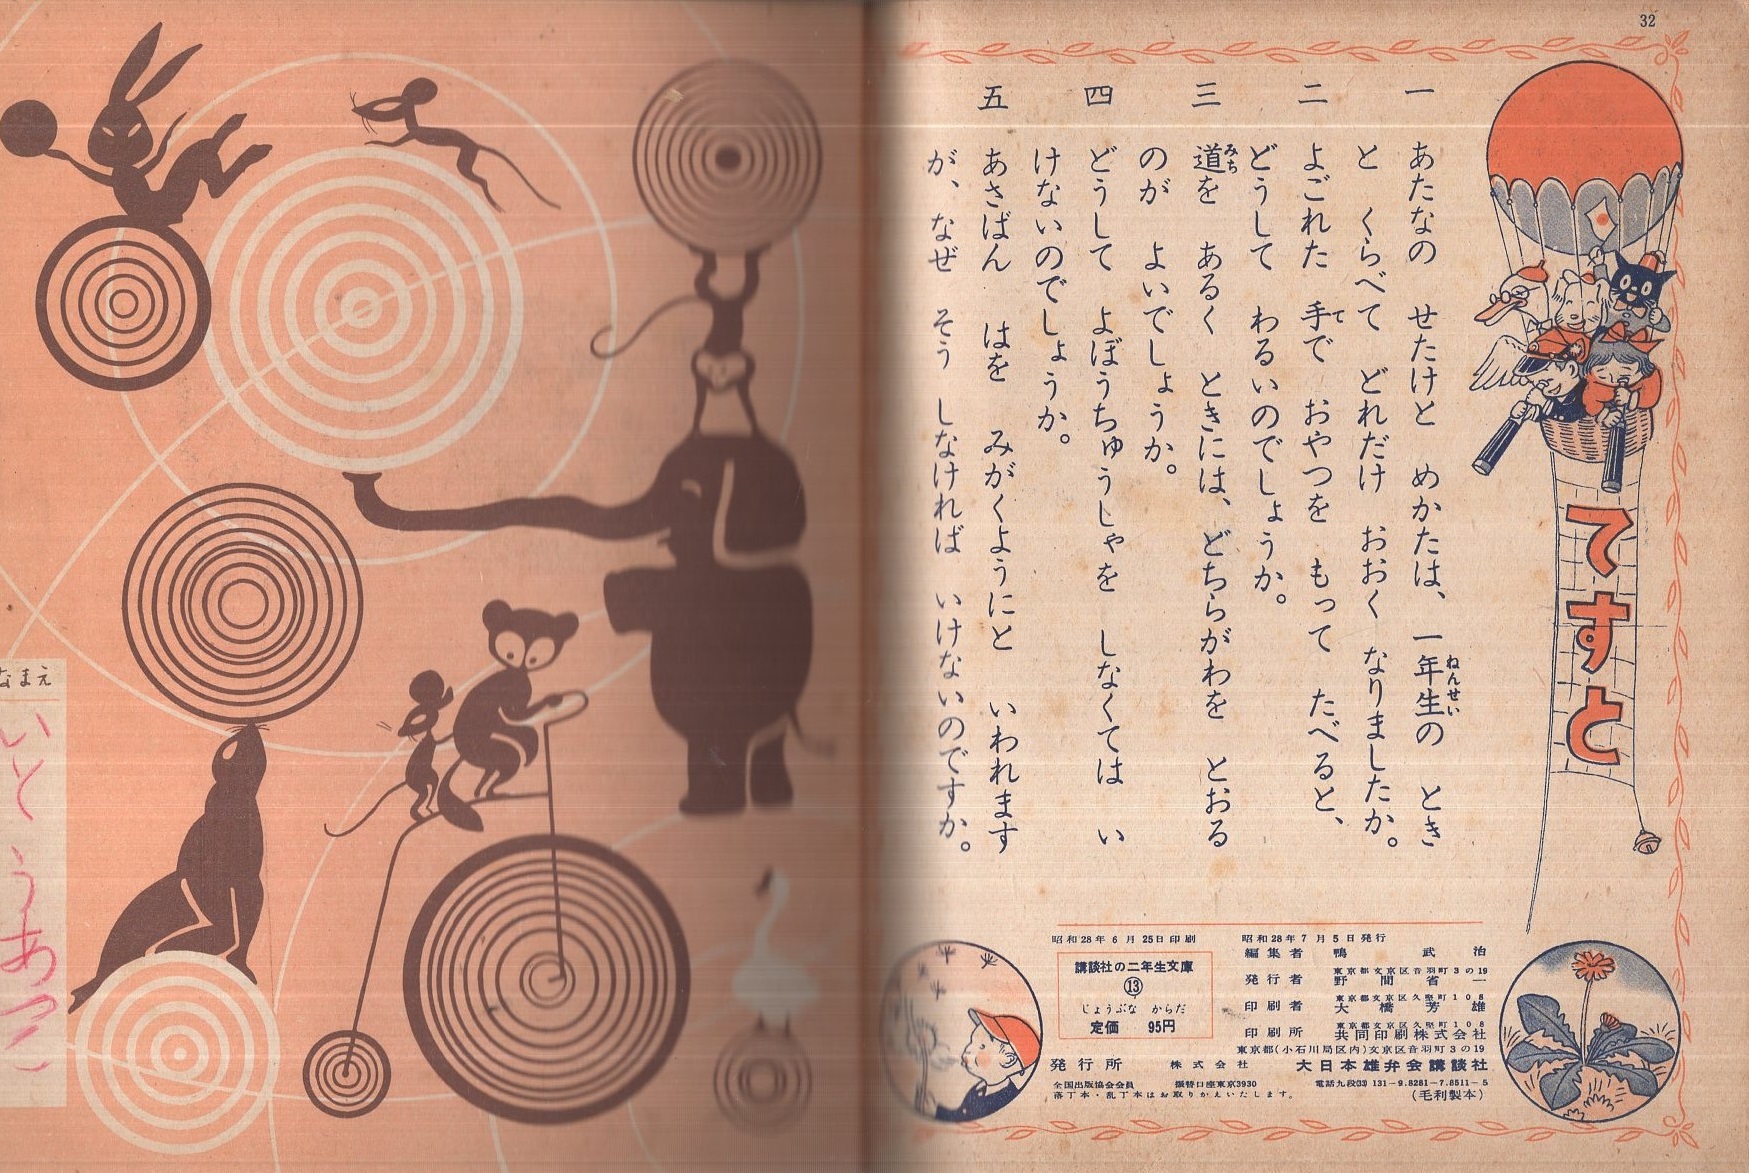 32
てすと
一 あたなの せたけと めかたは、一年生の とき
と くらべて どれだけ おおく なりましたか。
二 よごれた 手で おやつを もって たべると、
どうして わるいのでしょうか。
三 道を あるく ときには、どちらがわを とおる
のが よいでしょうか。
四 どうして よぼうちゅうしゃを しなくては い
けないのでしょうか。
五 あさばん はを みがくようにと いわれます
が、なぜ そう しなければ いけないのですか。
ねんせい
て
みち
昭和28年6月25日印刷
昭和28年7月5日発行
講談社の二年生文庫
⑬
じょうぶな からだ
定価 95円
編集者 鴨 武治
東京都文京区音羽町3の19
発行者 野間省一
東京都文京区久堅町108
印刷者 大橋芳雄
東京都文京区久堅町108
印刷所 共同印刷株式会社
東京都(小石川局区内)文京区音羽町3の19
発行所 株式会社 大日本雄弁会講談社
全国出版協会会員 振替口座東京3930 電話九段(33)131-9.8281-7.8511-5
落丁本・乱丁本はお取りかえいたします。 (毛利製本)
なまえ